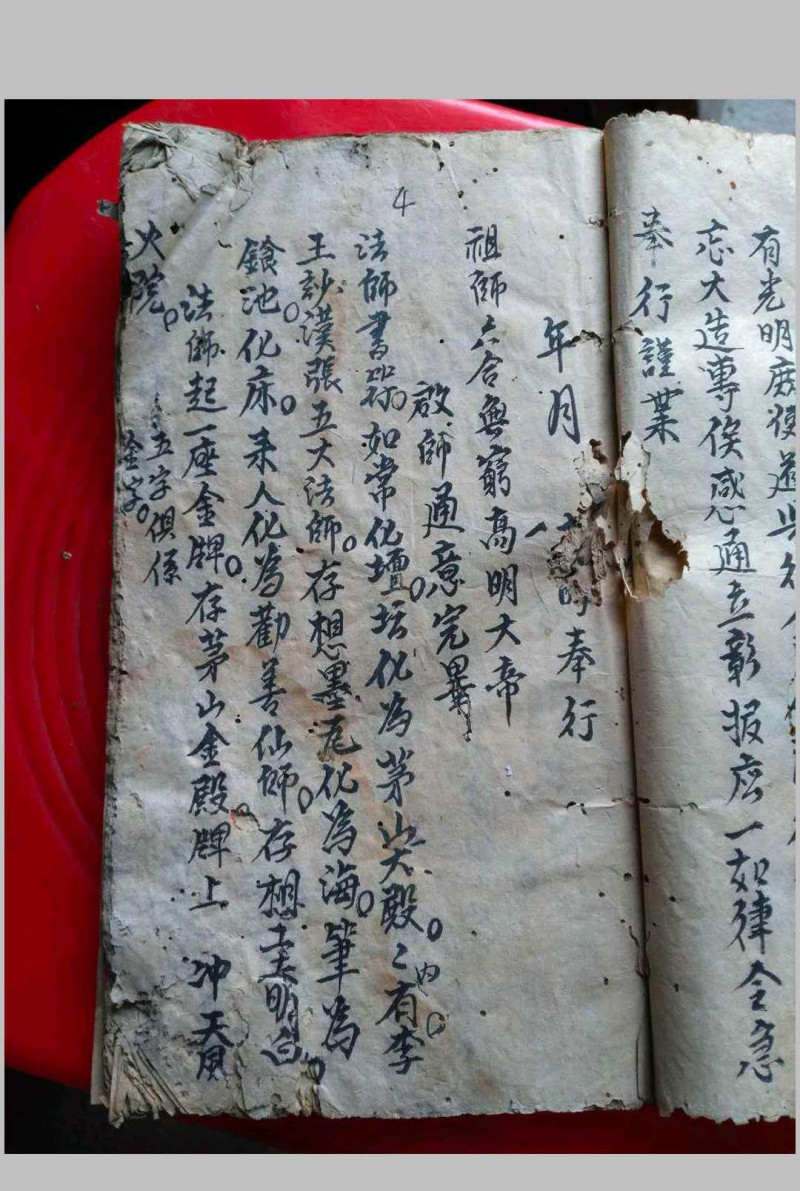 有光明
忘大造專俟感通立彰报應一如律令急
奉行謹業
年月 時奉行
4
祖師六合無窮高明大帝
啟師通意完畢
法師書符如常化壇坛化为茅山大殿〻内有李
王 漢張五大法師存想墨 化為海筆為
池化床来人化为勸善仙師存想 明白
法師起一座金牌存茅山金殿牌上 冲天風
火院 五字俱係
金字